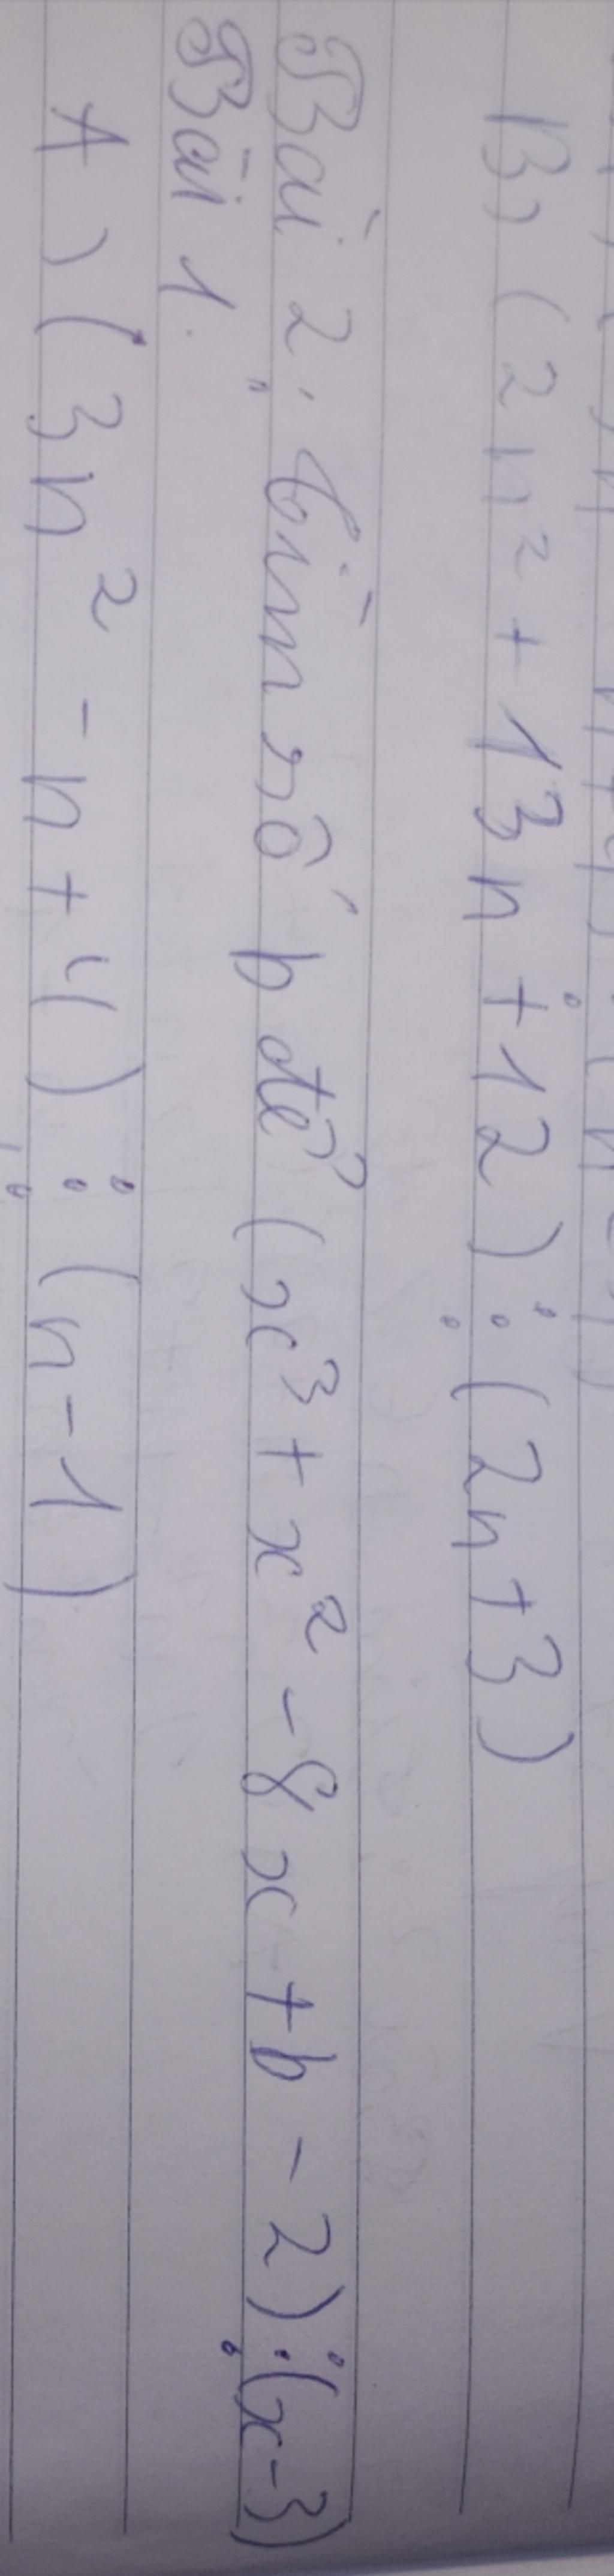 B, (2n² + 13n + 12) ⋮ (2n + 3)
Bài 2. tìm số b để (x³ + x² - 8x + b - 2) ⋮ (x - 3)
Bài 1.
A) (3n² - n + 4) ⋮ (n - 1)